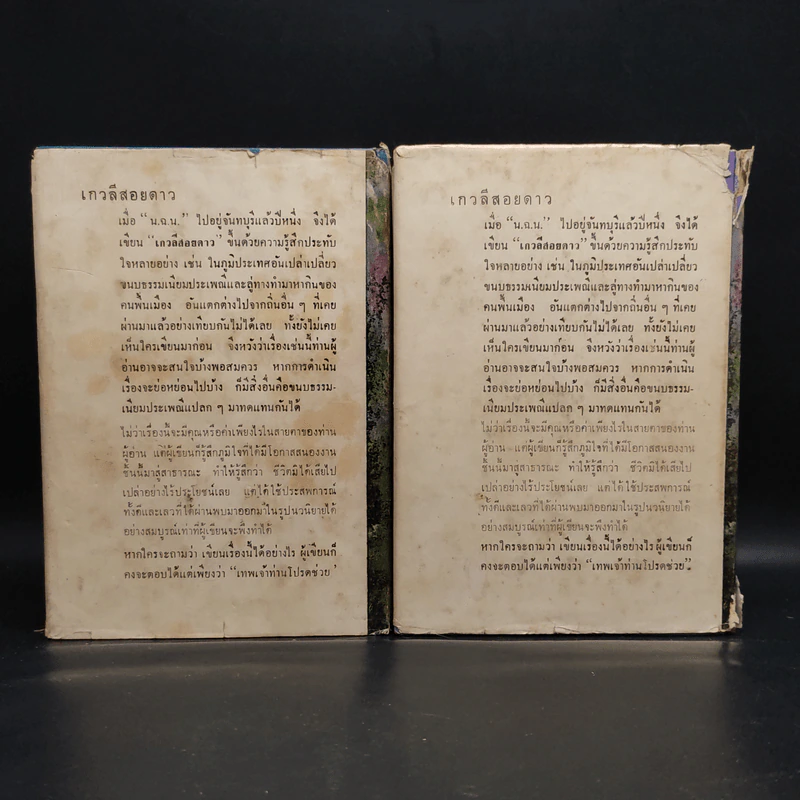 เกวลีสอยดาว
เมื่อ “น.ฉ.น.” ไปอยู่จันทบุรีแล้วปีหนึ่ง จึงได้
เขียน “เกวลีสอยดาว” ขึ้นด้วยความรู้สึกประทับ
ใจหลายอย่าง เช่น ในภูมิประเทศอันเปล่าเปลี่ยว
ขนบธรรมเนียมประเพณีและลู่ทางทำมาหากินของ
คนพื้นเมือง อันแตกต่างไปจากถิ่นอื่น ๆ ที่เคย
ผ่านมาแล้วอย่างเทียบกันไม่ได้เลย ทั้งยังไม่เคย
เห็นใครเขียนมาก่อน จึงหวังว่าเรื่องเช่นนี้ท่านผู้
อ่านอาจจะสนใจบ้างพอสมควร หากการดำเนิน
เรื่องจะย่อหย่อนไปบ้าง ก็มีสิ่งอื่นคือขนบธรรม-
เนียมประเพณีแปลก ๆ มาทดแทนกันได้
ไม่ว่าเรื่องนี้จะมีคุณหรือค่าเพียงไรในสายตาของท่าน
ผู้อ่าน แต่ผู้เขียนก็รู้สึกภูมิใจที่ได้มีโอกาสสนองงาน
ชั้นนี้มาสู่สาธารณะ ทำให้รู้สึกว่า ชีวิตมิได้เสียไป
เปล่าอย่างไร้ประโยชน์เลย แต่ได้ใช้ประสพการณ์
ทั้งดีและเลวที่ได้ผ่านพบมาออกมาในรูปนวนิยายได้
อย่างสมบูรณ์เท่าที่ผู้เขียนจะพึงทำได้
หากใครจะถามว่า เขียนเรื่องนี้ได้อย่างไร ผู้เขียนก็
คงจะตอบได้แต่เพียงว่า “เทพเจ้าท่านโปรดช่วย’
เกวลีสอยดาว
เมื่อ “น.ฉ.น.” ไปอยู่จันทบุรีแล้วปีหนึ่ง จึงได้
เขียน “เกวลีสอยดาว” ขึ้นด้วยความรู้สึกประทับ
ใจหลายอย่าง เช่น ในภูมิประเทศอันเปล่าเปลี่ยว
ขนบธรรมเนียมประเพณีและลู่ทางทำมาหากินของ
คนพื้นเมือง อันแตกต่างไปจากถิ่นอื่น ๆ ที่เคย
ผ่านมาแล้วอย่างเทียบกันไม่ได้เลย ทั้งยังไม่เคย
เห็นใครเขียนมาก่อน จึงหวังว่าเรื่องเช่นนี้ท่านผู้
อ่านอาจจะสนใจบ้างพอสมควร หากการดำเนิน
เรื่องจะย่อหย่อนไปบ้าง ก็มีสิ่งอื่นคือขนบธรรม-
เนียมประเพณีแปลก ๆ มาทดแทนกันได้
ไม่ว่าเรื่องนี้จะมีคุณหรือค่าเพียงไรในสายตาของท่าน
ผู้อ่าน แต่ผู้เขียนก็รู้สึกภูมิใจที่ได้มีโอกาสสนองงาน
ชั้นนี้มาสู่สาธารณะ ทำให้รู้สึกว่า ชีวิตมิได้เสียไป
เปล่าอย่างไร้ประโยชน์เลย แต่ได้ใช้ประสพการณ์
ทั้งดีและเลวที่ได้ผ่านพบมาออกมาในรูปนวนิยายได้
อย่างสมบูรณ์เท่าที่ผู้เขียนจะพึงทำได้
หากใครจะถามว่า เขียนเรื่องนี้ได้อย่างไร ผู้เขียนก็
คงจะตอบได้แต่เพียงว่า “เทพเจ้าท่านโปรดช่วย”.